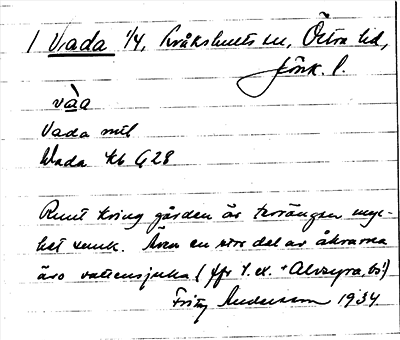 1 Vada 1/4, Bråkshults sn, Östra hd,
Jönk. l.
vàa
Vada mtl
Wada Kb G28
Runt kring gården är terrängen myc-
ket sank. Även en stor del av åkrarna
äro vattensjuka (jfr t. ex.
Andersson 1934